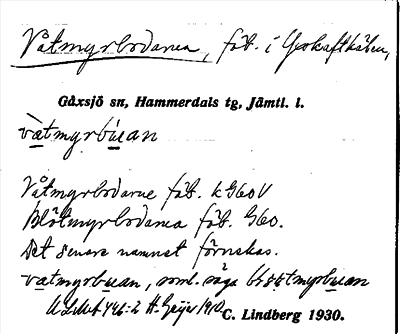 Våtmyrbodarna, fäb. i
Gåxsjö sn, Hammerdals tg, Jämtl. l.
vatmyrbuan
Våtmyrbodarne fäb. k G60V
Blötmyrbodarna fäb. G60.
Det senare namnet förnekas.
vatmyrbuan, soml. säga bløtmyrbuan
ULMA 446:2 H. Geijer 1910
C. Lindberg 1930.